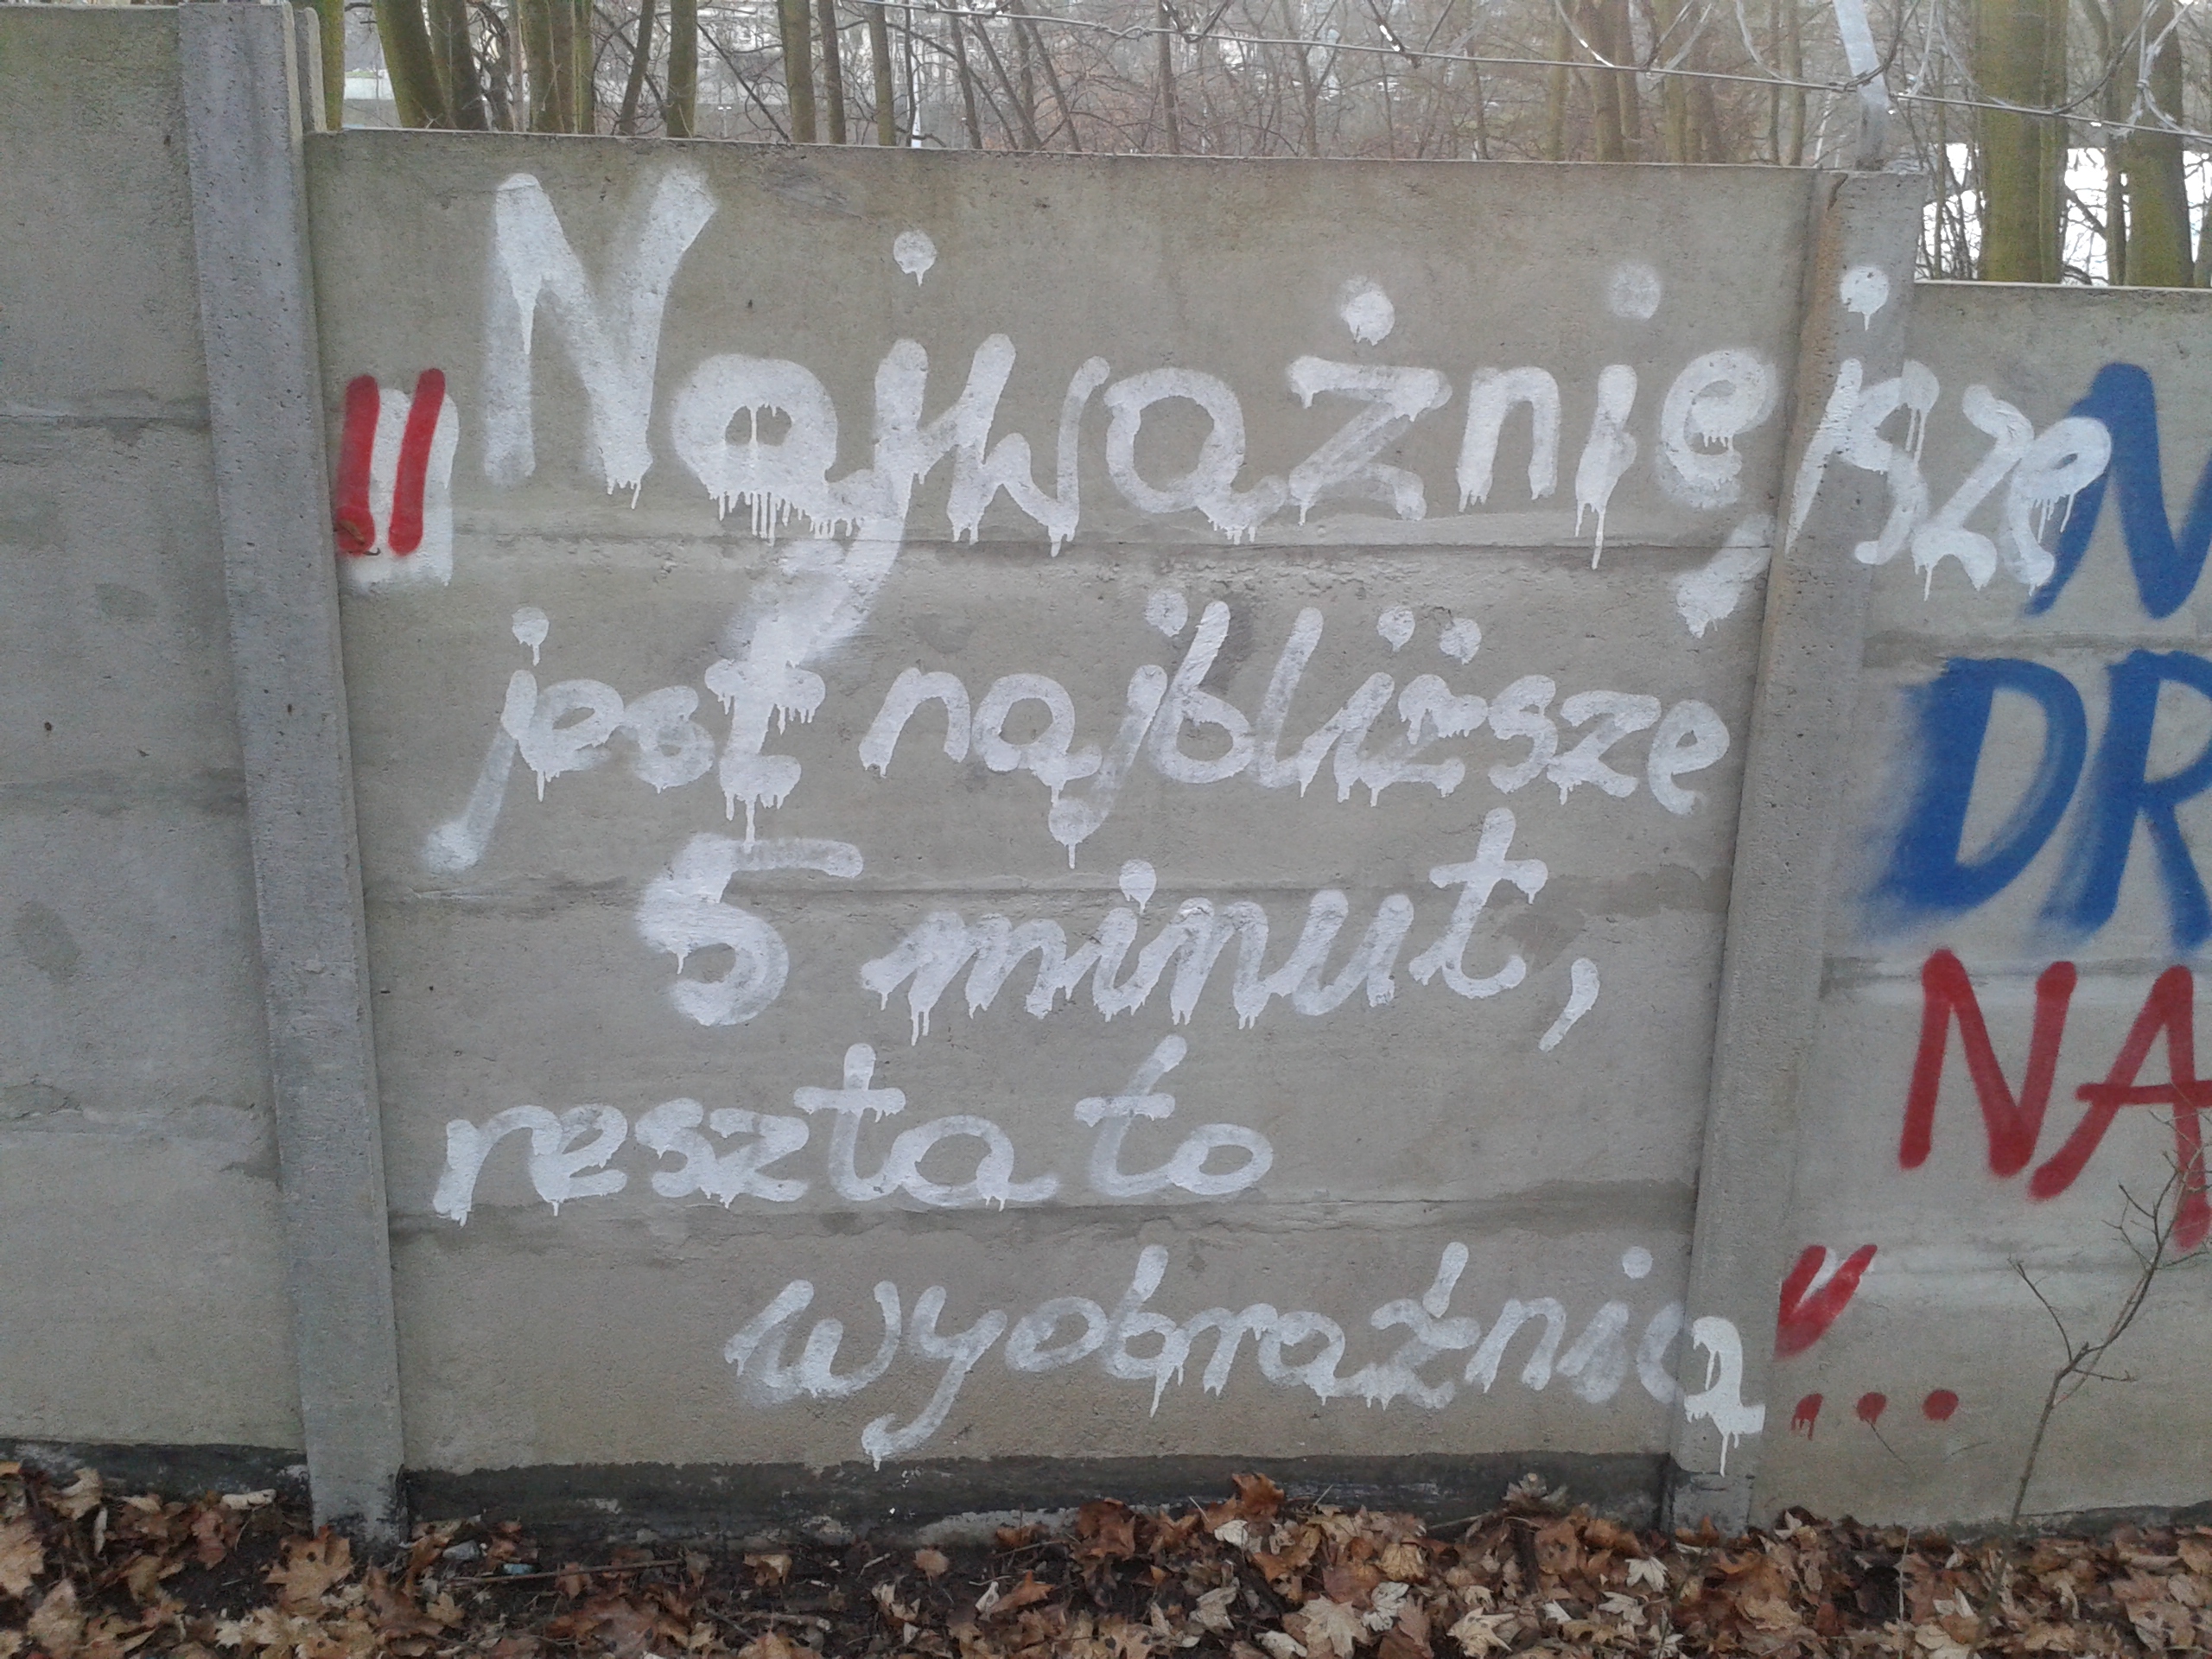 "Najważniejsze
jest najbliższe
5 minut,
reszta to
wyobraźnia"...
N
DR
NA